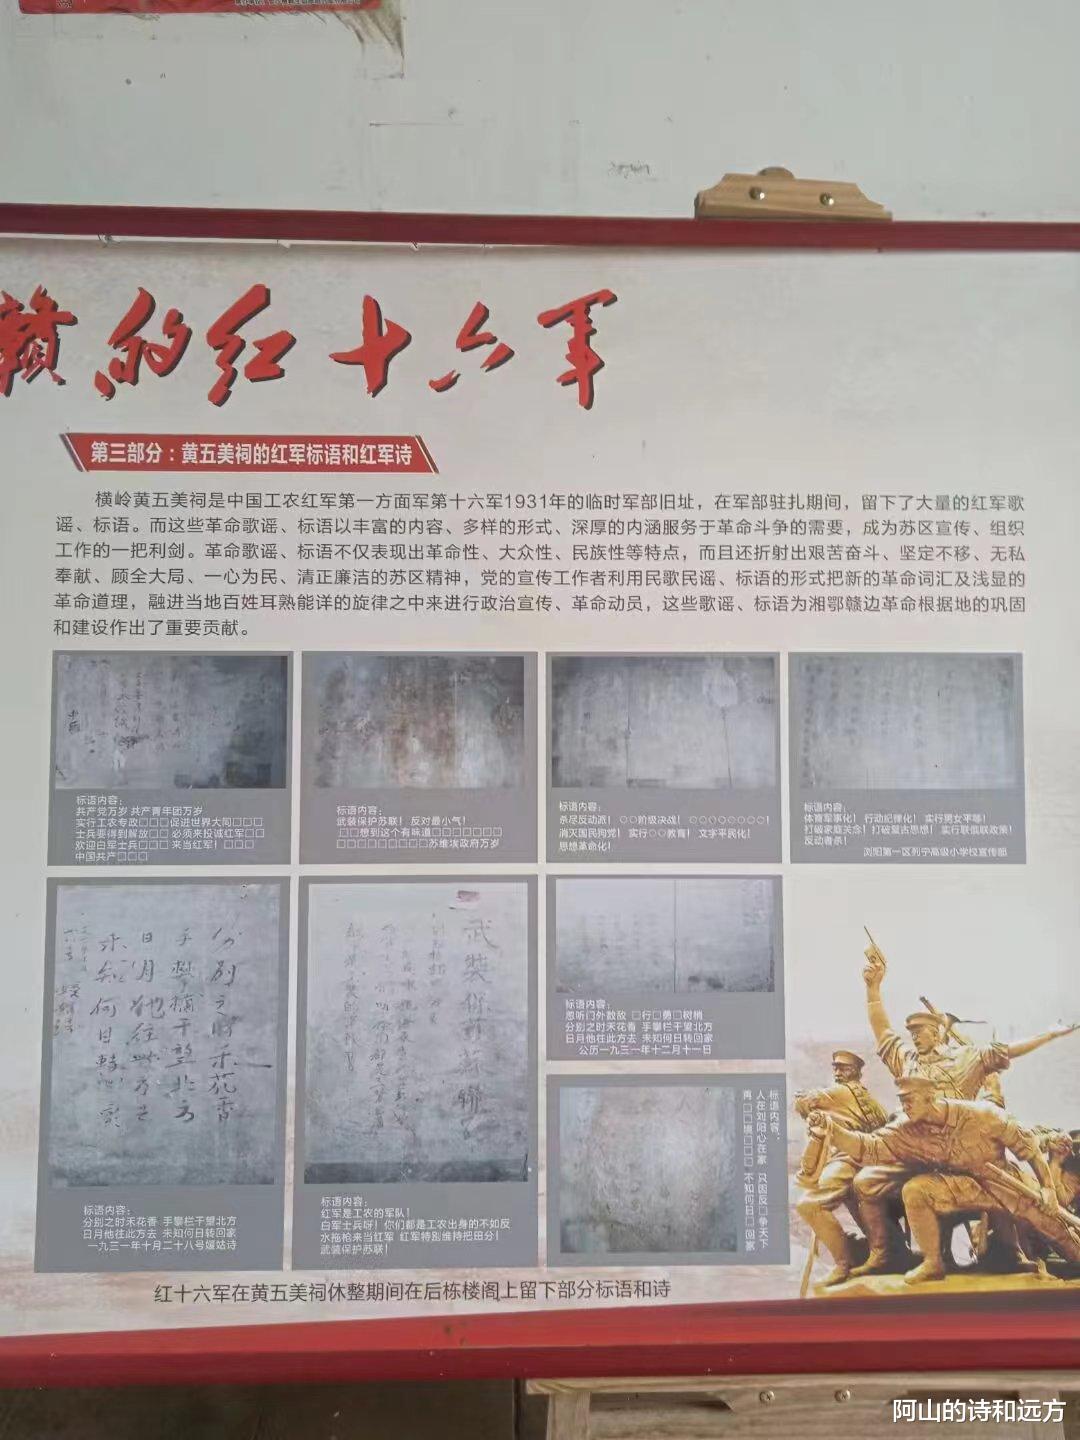 赣的红十六军
第三部分：黄五美祠的红军标语和红军诗
横岭黄五美祠是中国工农红军第一方面军第十六军1931年的临时军部旧址，在军部驻扎期间，留下了大量的红军歌
谣、标语。而这些革命歌谣、标语以丰富的内容、多样的形式、深厚的内涵服务于革命斗争的需要，成为苏区宣传、组织
工作的一把利剑。革命歌谣、标语不仅表现出革命性、大众性、民族性等特点，而且还折射出艰苦奋斗、坚定不移、无私
奉献、顾全大局、一心为民、清正廉洁的苏区精神，党的宣传工作者利用民歌民谣、标语的形式把新的革命词汇及浅显的
革命道理，融进当地百姓耳熟能详的旋律之中来进行政治宣传、革命动员，这些歌谣、标语为湘鄂赣边革命根据地的巩固
和建设作出了重要贡献。
标语内容：
共产党万岁 共产青年团万岁
实行工农专政□□□促进世界大同□□□
士兵要得到解放□□ 必须来投诚红军□□
欢迎白军士兵□□□ 来当红军！□□
中国共产□□□
标语内容：
武装保护苏联！ 反对最小气！
□□想到这个有味道□□□□□□□
□□□□□□□□□苏维埃政府万岁
标语内容：
杀尽反动派！ ○○阶级决战！ ○○○○○○○○！
消灭国民狗党！ 实行○○教育！ 文字平民化！
思想革命化！
标语内容：
体育军事化！ 行动纪律化！ 实行男女平等！
打破家庭关念！打破复古思想！ 实行联俄联政策！
反动者杀！
浏阳第一区列宁高级小学校宣传部
分别之时禾花香
手攀栏干望北方
日月他往此方去
未知何日转回家
武装保护苏联
标语内容：
分别之时禾花香 手攀栏干望北方
日月他往此方去 未知何日转回家
一九三一年十月二十八号媛姑诗
标语内容：
红军是工农的军队！
白军士兵呀！你们都是工农出身的不如反
水拖枪来当红军 红军特别维持把田分！
武装保护苏联！
标语内容：
忽听门外数敌 □行□勇□树梢
分别之时禾花香 手攀栏干望北方
日月他往此方去 未知何日转回家
公历一九三一年十二月十一日
标语内容：
人在刘阳心在家 只因反□争天下
再□□境□□□ 不知何日□回家
红十六军在黄五美祠休整期间在后栋楼阁上留下部分标语和诗
阿山的诗和远方